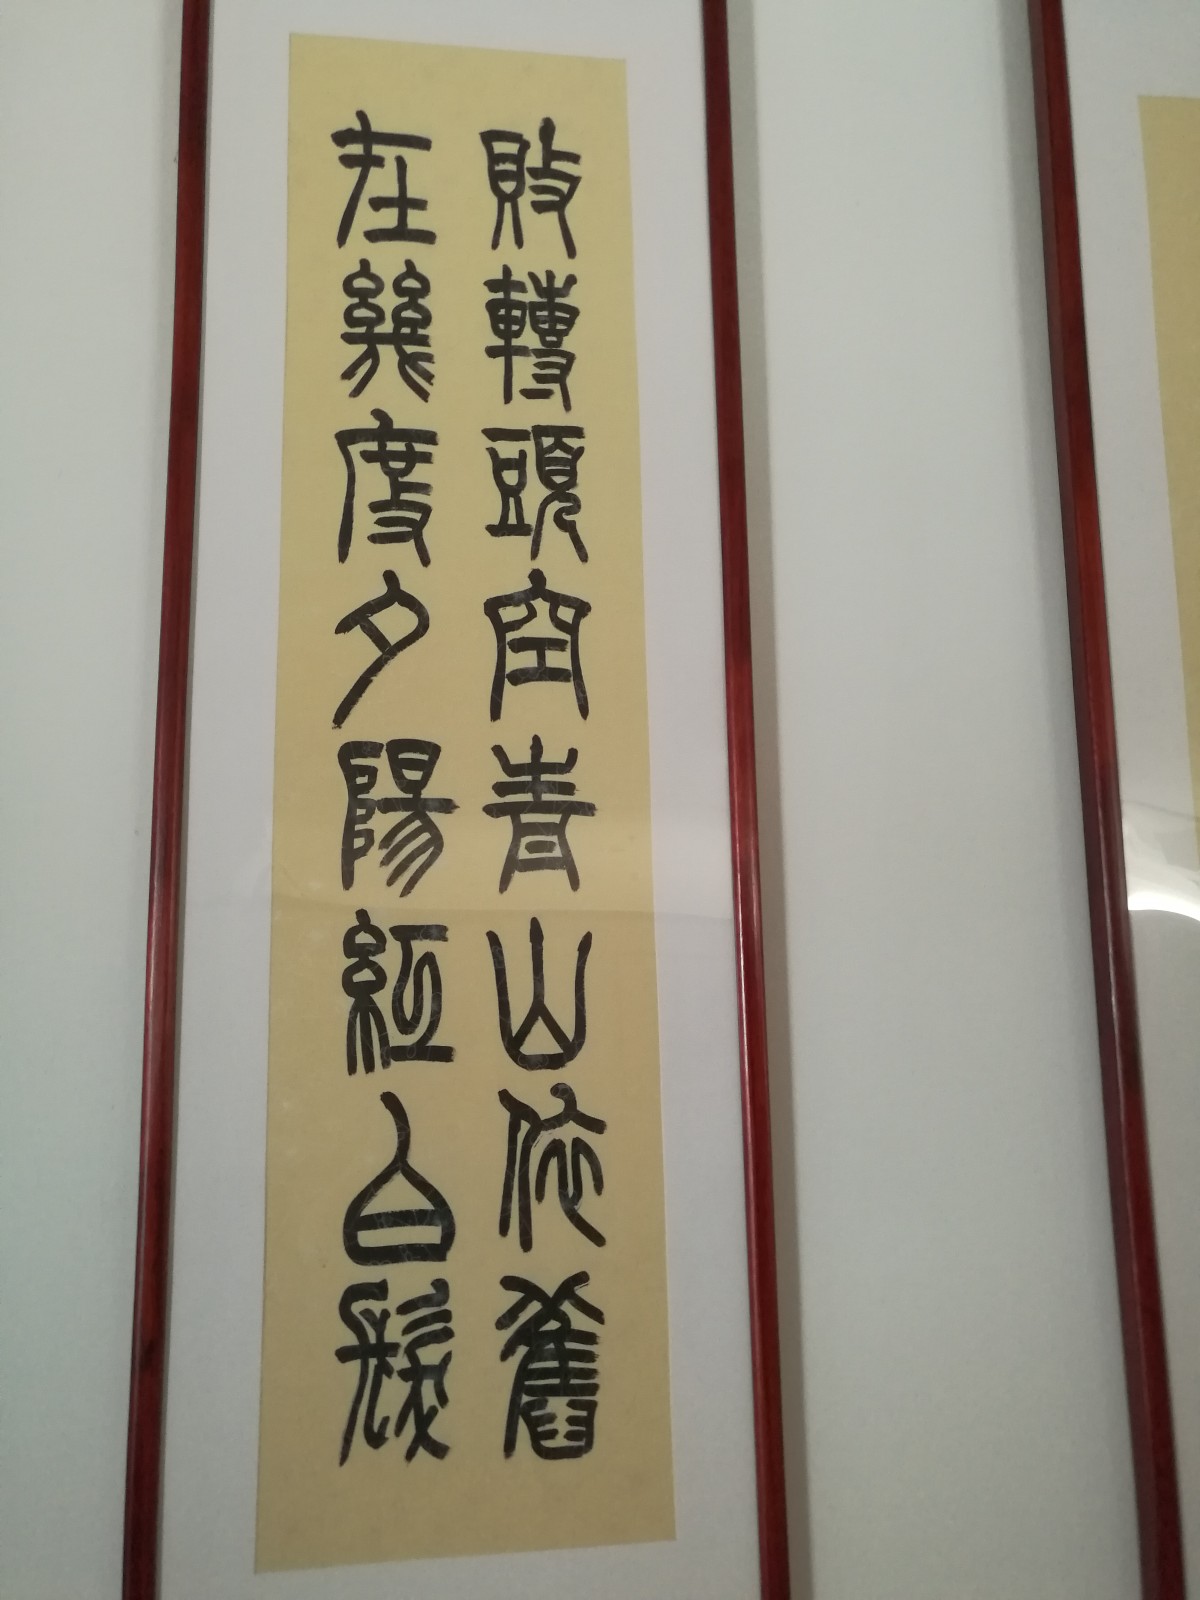 敗轉頭空青山依舊
在幾度夕陽紅白髮